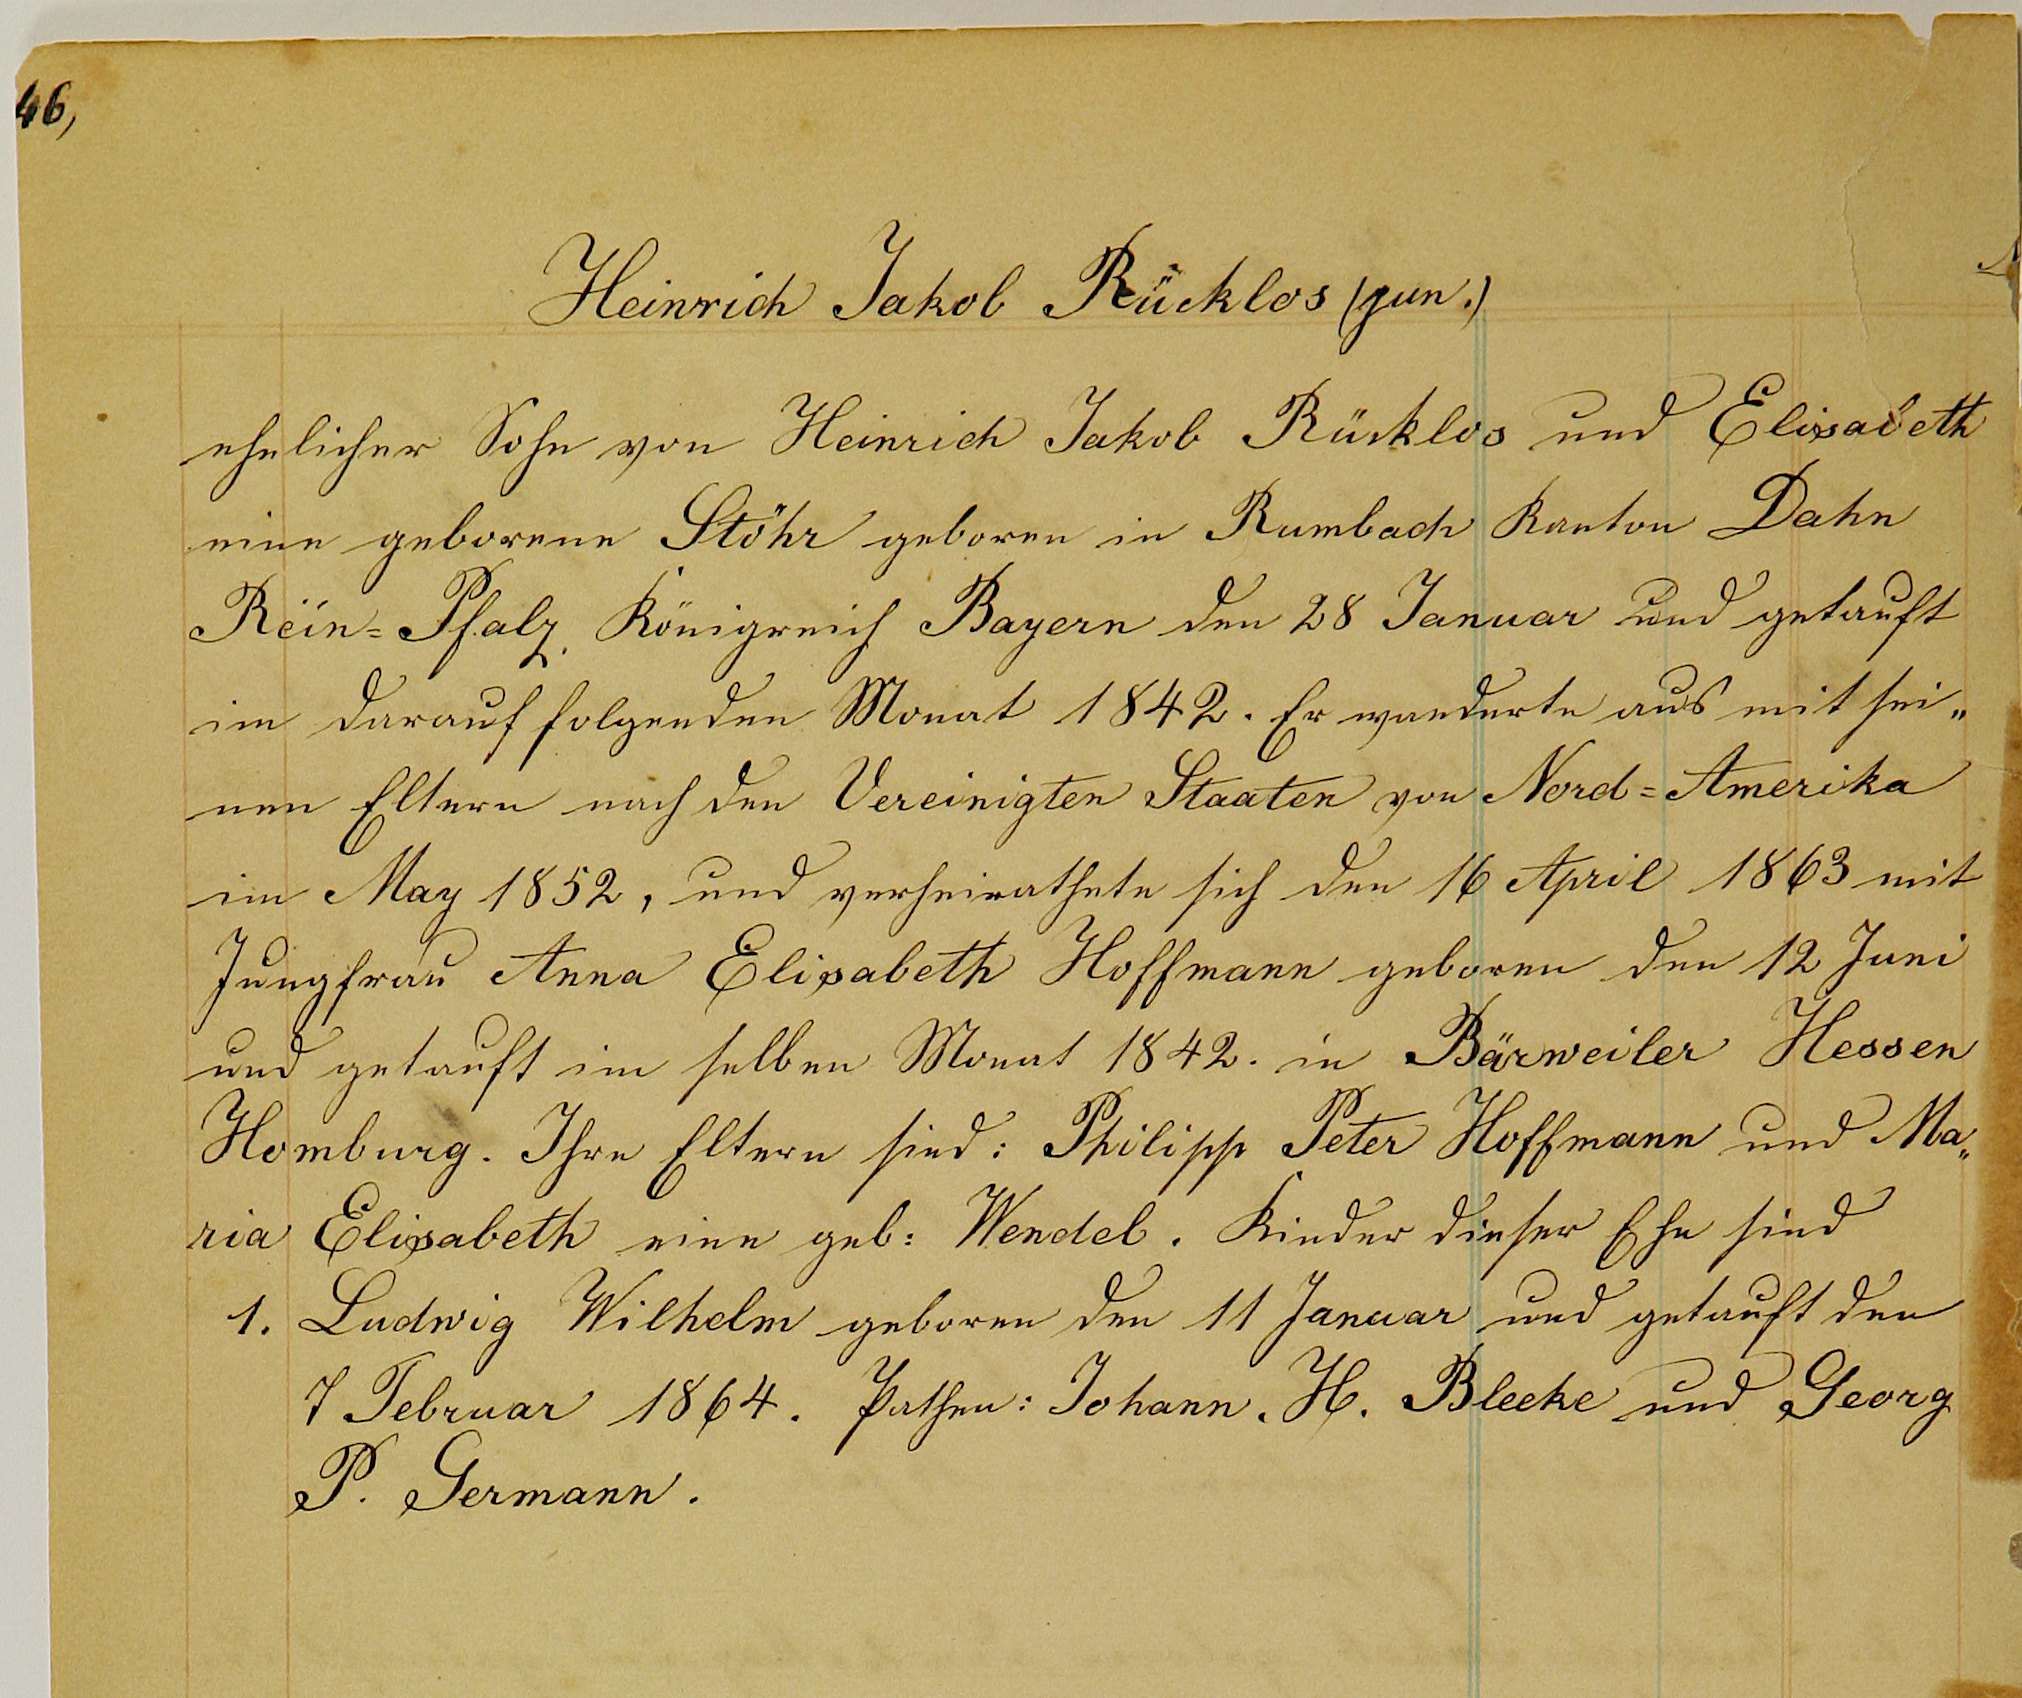 46,
Heinrich Jakob Rücklos (jun.)
ehelicher Sohn von Heinrich Jakob Rücklos und Elisabeth
eine geborene Stöhr geboren in Rumbach Kanton Dahn
Rein=Pfalz, Königreich Bayern den 28 Januar und getauft
im darauf folgenden Monat 1842. Er wanderte aus mit sei„
nen Eltern nach den Vereinigten Staaten von Nord=Amerika
im May 1852, und verheirathete sich den 16 April 1863 mit
Jungfrau Anna Elisabeth Hoffmann geboren den 12 Juni
und getauft im selben Monat 1842. in Bärweiler Hessen
Homburg. Ihre Eltern sind: Philipp Peter Hoffmann und Ma„
ria Elisabeth eine geb: Wendel. Kinder dieser Ehe sind
1. Ludwig Wilhelm geboren den 11 Januar und getauft den
7 Februar 1864. Pathen: Johann. H. Bleeke und Georg
P. Germann.